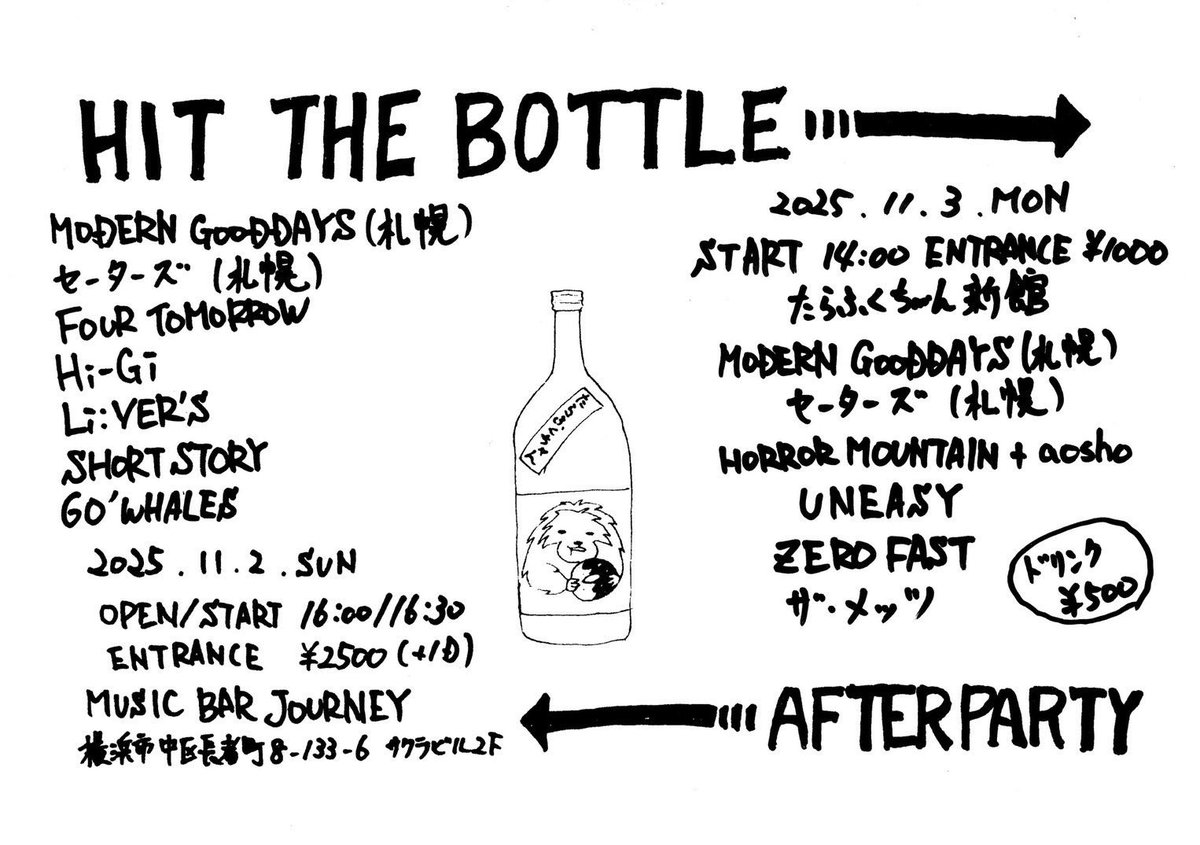 HIT THE BOTTLE
MODERN GOODDAYS (札幌)
セーターズ (札幌)
FOUR TOMORROW
Hi-Gi
Li:VER'S
SHORT STORY
GO'WHALES
2025.11.2.SUN
OPEN/START 16:00//16:30
ENTRANCE ¥2500 (+1D)
MUSIC BAR JOURNEY
横浜市中区長者町8-133-6 サクラビル2F
2025.11.3.MON
START 14:00 ENTRANCE ¥1000
たらふくちーん新館
MODERN GOODDAYS (札幌)
セーターズ (札幌)
HORROR MOUNTAIN + aosho
UNEASY
ZERO FAST
ザ・メッツ
ドリンク
¥500
AFTERPARTY